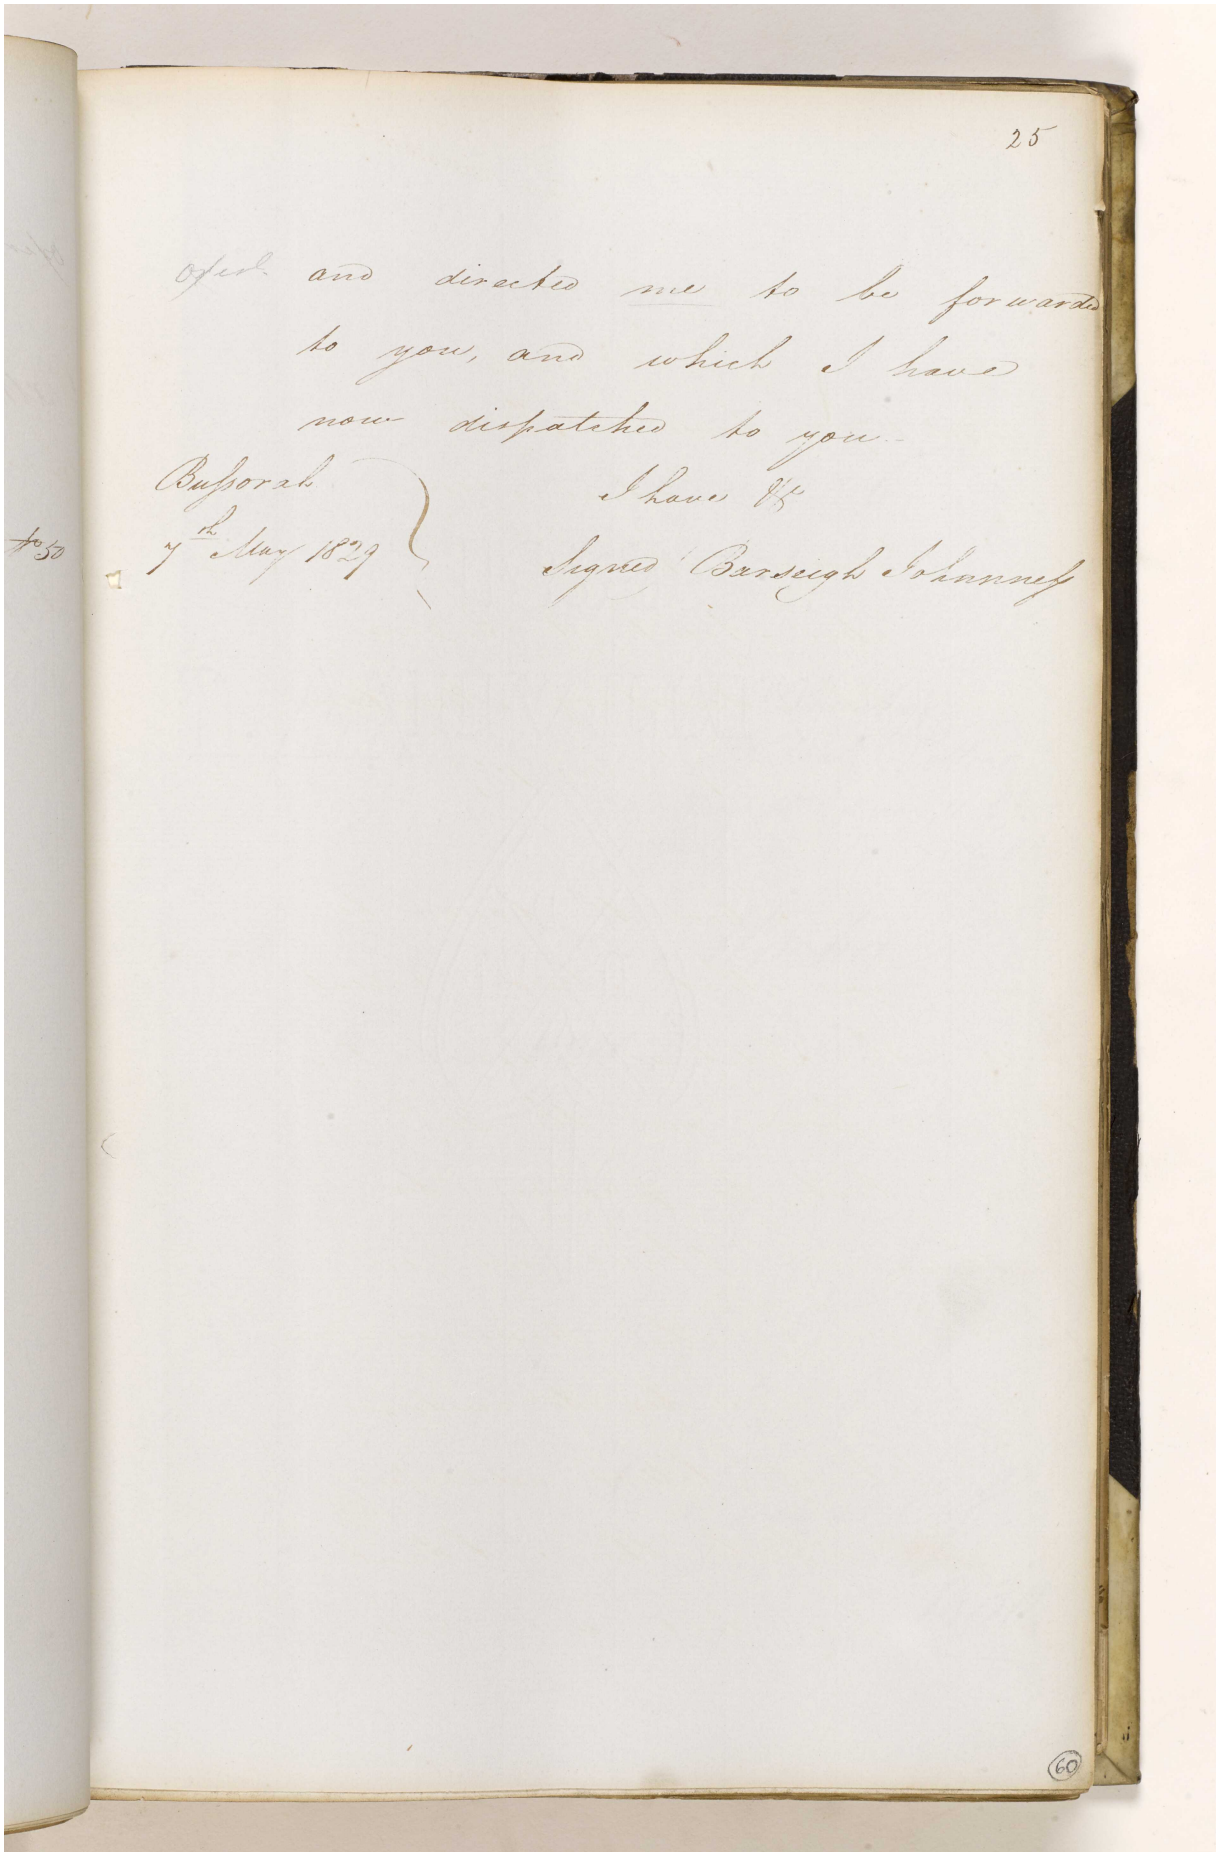 25
and directed me to be forwarded
to you, and which I have
now dispatched to you
Bussorah
7th May 1829
I have &c
Signed Barseigh Johanness
No 50
60